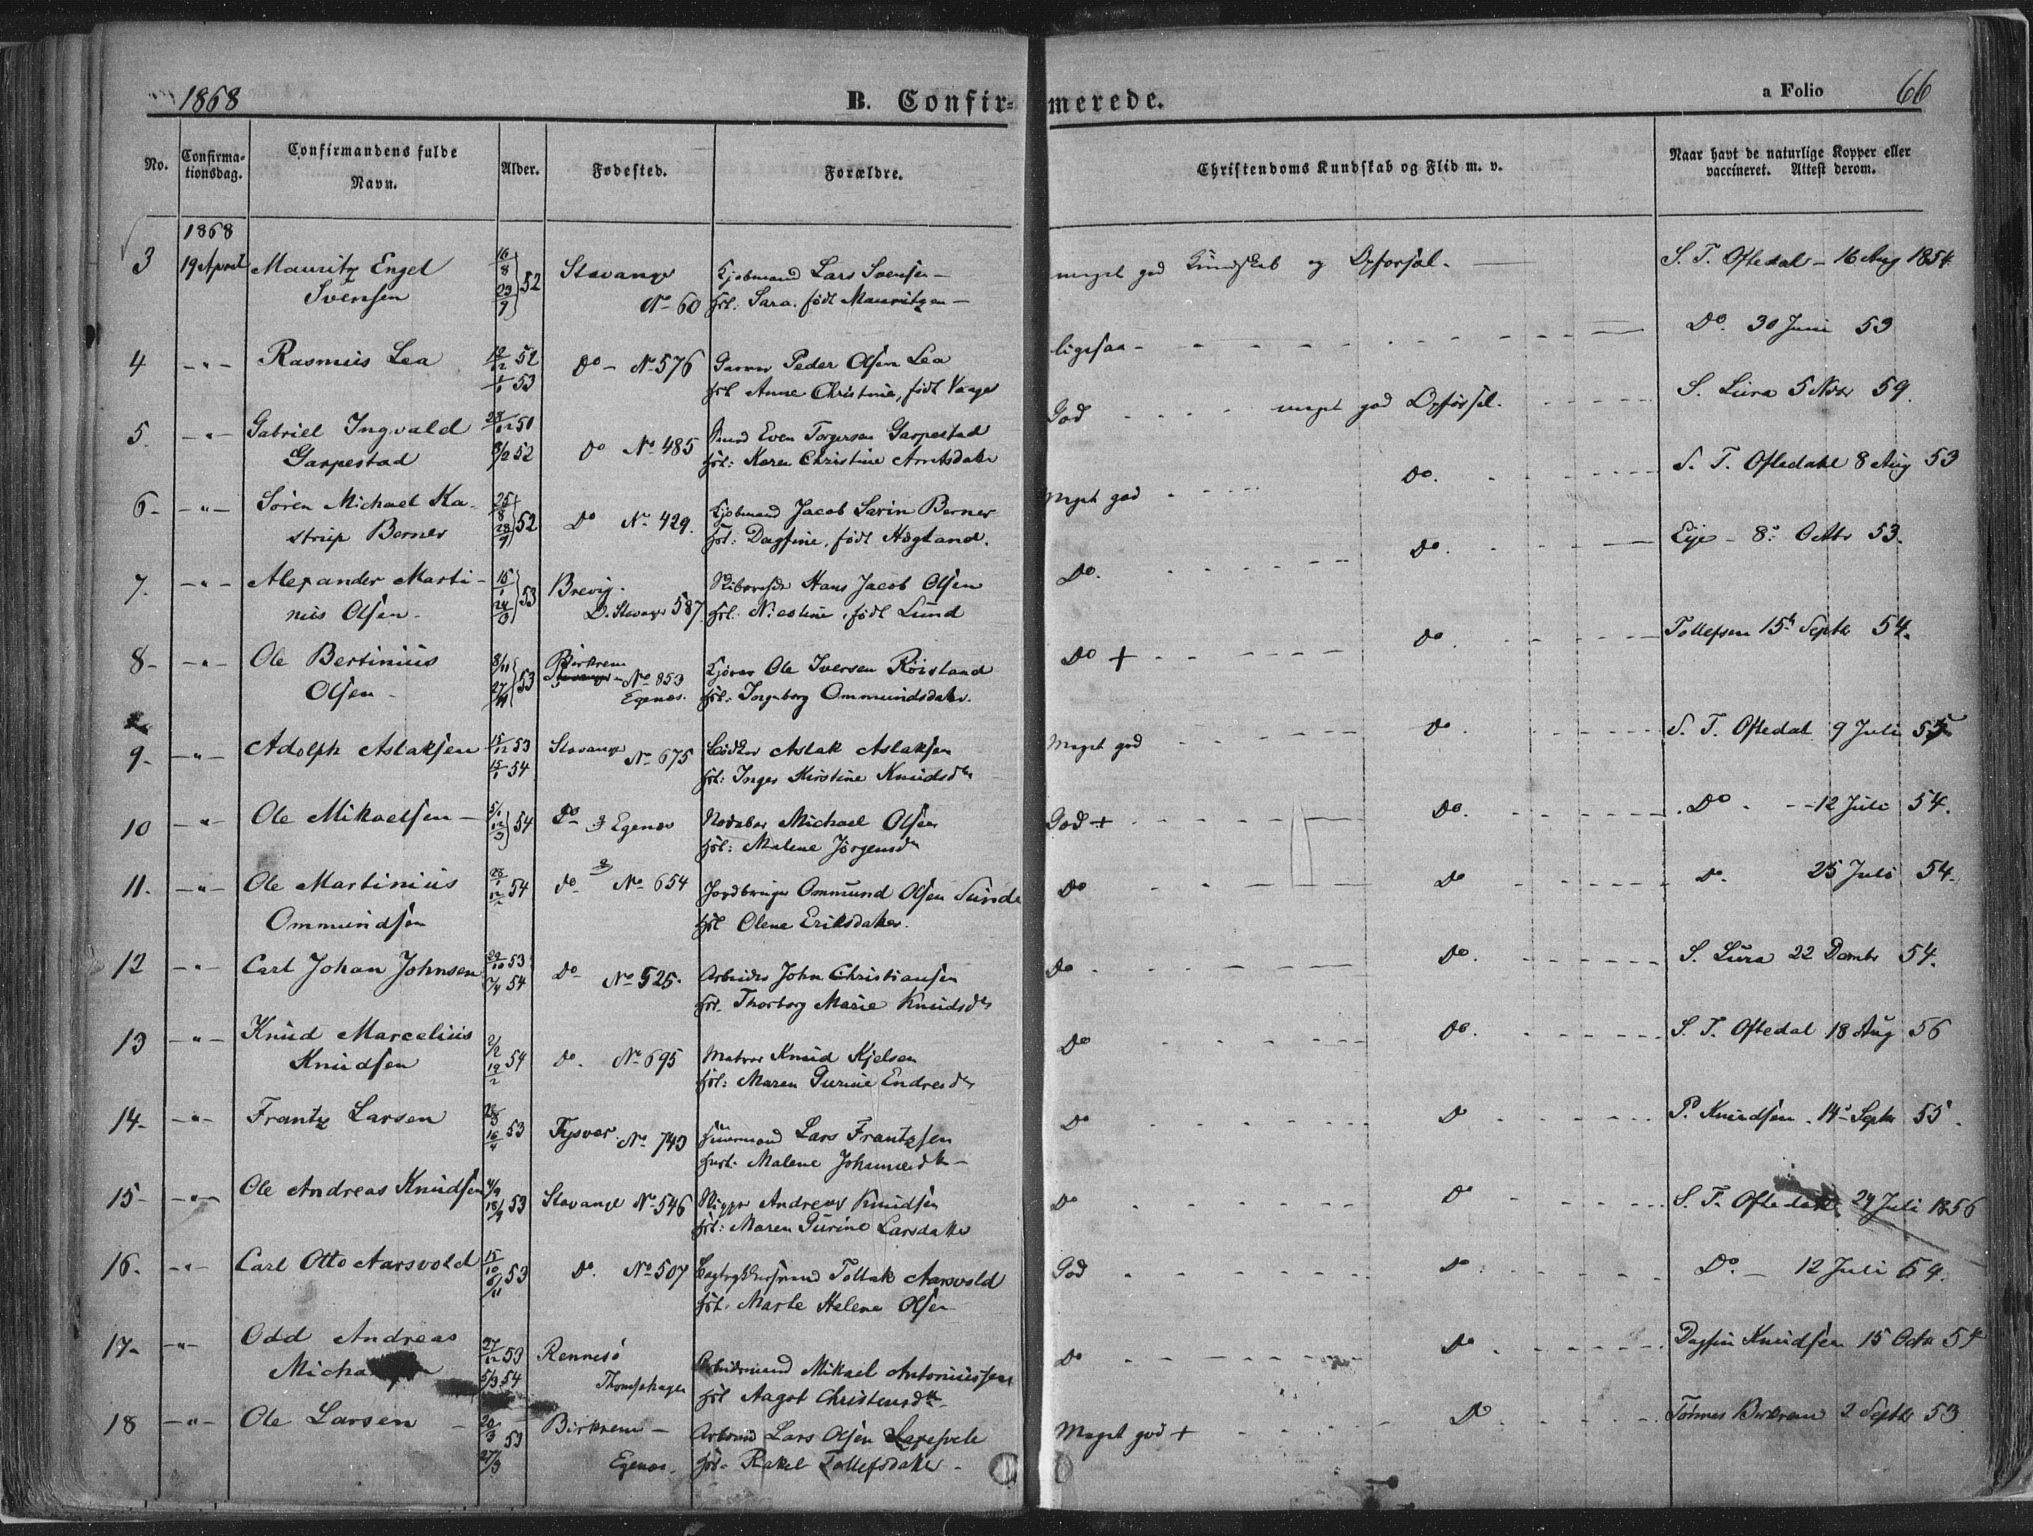 1868
B. Confir=
merede.
a Folio 66
No.
Confirma-
tionsdag.
Confirmandens fulde
Navn.
Alder.
Fødested.
Forældre.
Christendoms Kundskab og Flid m. v.
Naar havt de naturlige Kopper eller
vaccineret. Attest derom.
1868
3 19 April Mauritz Engel 16/8 52 Stavanger Kjøbmand Lars Svensen - meget god Kundskab og Opførsel. S. T. Oftedal - 16 Aug 1854
Svensen No 60 Sara, født Mauritzen -
4 - " - Rasmus Lea 52 Do - No 576 Peder Olsen Lea ligesaa - Do. 30 Juni 53
53 Anne Christine, født Vaage
5. - " - Gabriel Ingvald 50 Do No 485 Even Torgersen Garpestad God meget god Opførsel. S. Lura 5 Nvbr 59.
Garpestad 52 Karen Christine Arntsdatter
6- - " - Søren Michael Ka- 25/8 52 Do No 429. Kjøbmand Jacob Sørin Berner Meget god Do. S. T. Oftedahl 8 Aug 53
strup Berner 28/9 Dagfine, født Høgland.
7. - " - Alexander Marti- 15/1 53 Brevig. Hans Jacob Olsen Do. Do. Eije - 8: Octbr 53.
nius Olsen - D. Stavanger 587 Nicoline, født Lund
8- - " - Ole Bertinius 8/11 53 Birkrem Ole Iversen Røisland Do + Do Tollefsen 15 Septbr 54.
Olsen - No 853 Egenæs. Ingeborg Ommundsdatter.
9- - " - Adolph Aslaksen 15/12 53 Stavanger No 675 Aslak Aslaksen Meget god Do. S. T. Oftedal 9 Juli 55
15/1 54 Inger Kirstine Knudsdtr
10 - " - Ole Mikaelsen - 5/1 54 Do 3 Egenæs Michael Olsen God + Do. Do. - 12 Juli 54.
12/3 Malene Jørgensdtr
11. - " - Ole Martinius 28/1 54 Do No 654 Jordbruger Ommund Olsen Sunde Do Do Do. 25 Juli 54.
Ommundsen 12/2 Olene Eriksdatter.
12 - " - Carl Johan Johnsen 29/10 53 Do No 525. Arbeider John Christiansen Do Do. S. Lura 22 Decmbr 54.
54 Thorborg Marie Knudsdtr
13 - " - Knud Marcelius 2/2 54 Do. No 695 Knud Kjelsen Do Do. S. T. Oftedal 18 Aug 56
Knudsen 19/2 Maren Gurine Endresdtr
14- - " - Frantz Larsen 53 Tysvær. No 743 Lars Frantzsen Do Do P. Knudsen. 14 Septbr 55.
16/4 Malene Johannesdtr -
15- - " - Ole Andreas Knudsen 4/9 53 Stavanger No 546 Skipper Andreas Knudsen Do Do S. T. Oftedahl 24 Juli 1856
18/9 Maren Gurine Larsdatter
16. - " - Carl Otto Aarsvold 15/10 53 Do. No 507 Tollak Aarsvold God Do Do. - 12 Juli 54.
6/11 Marte Helene Olsen
17- - " - Odd Andreas 27/12 53 Rennesø Arbeidsmand Mikael Antoniussen Do Do Dagfin Knudsen 15 Octbr 54
5/3 54 Aagot Christensdtr-
18 - " - Ole Larsen - 20/3 53 Birkrem - Lars Olsen Meget god + Do Tønnes Birkrem 2 Septbr 53
27/3 Egenæs. Rakel Tollefsdatter -